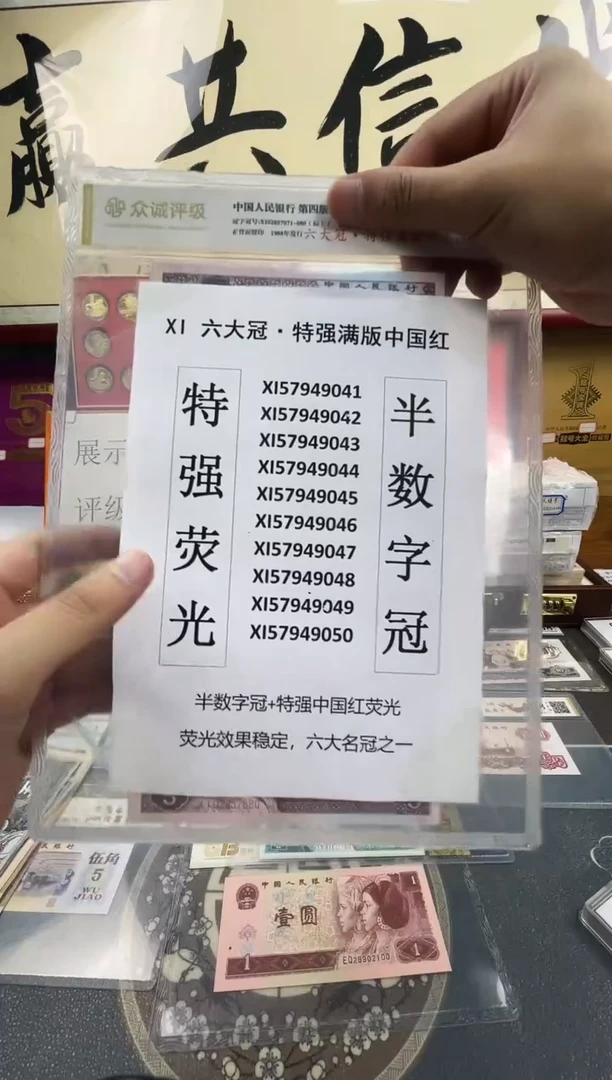 赢 共 信
众诚评级
中国人民银行 第四版
1980年发行 六大冠·特强
中国人民银行
XI 六大冠·特强满版中国红
特强荧光
XI57949041
XI57949042
XI57949043
XI57949044
XI57949045
XI57949046
XI57949047
XI57949048
XI57949049
XI57949050
半数字冠
半数字冠+特强中国红荧光
荧光效果稳定，六大名冠之一
展示
评级
5
1
伍角
5
WU
JIAO
中国人民银行
壹圆
1
1
EQ28902100
1